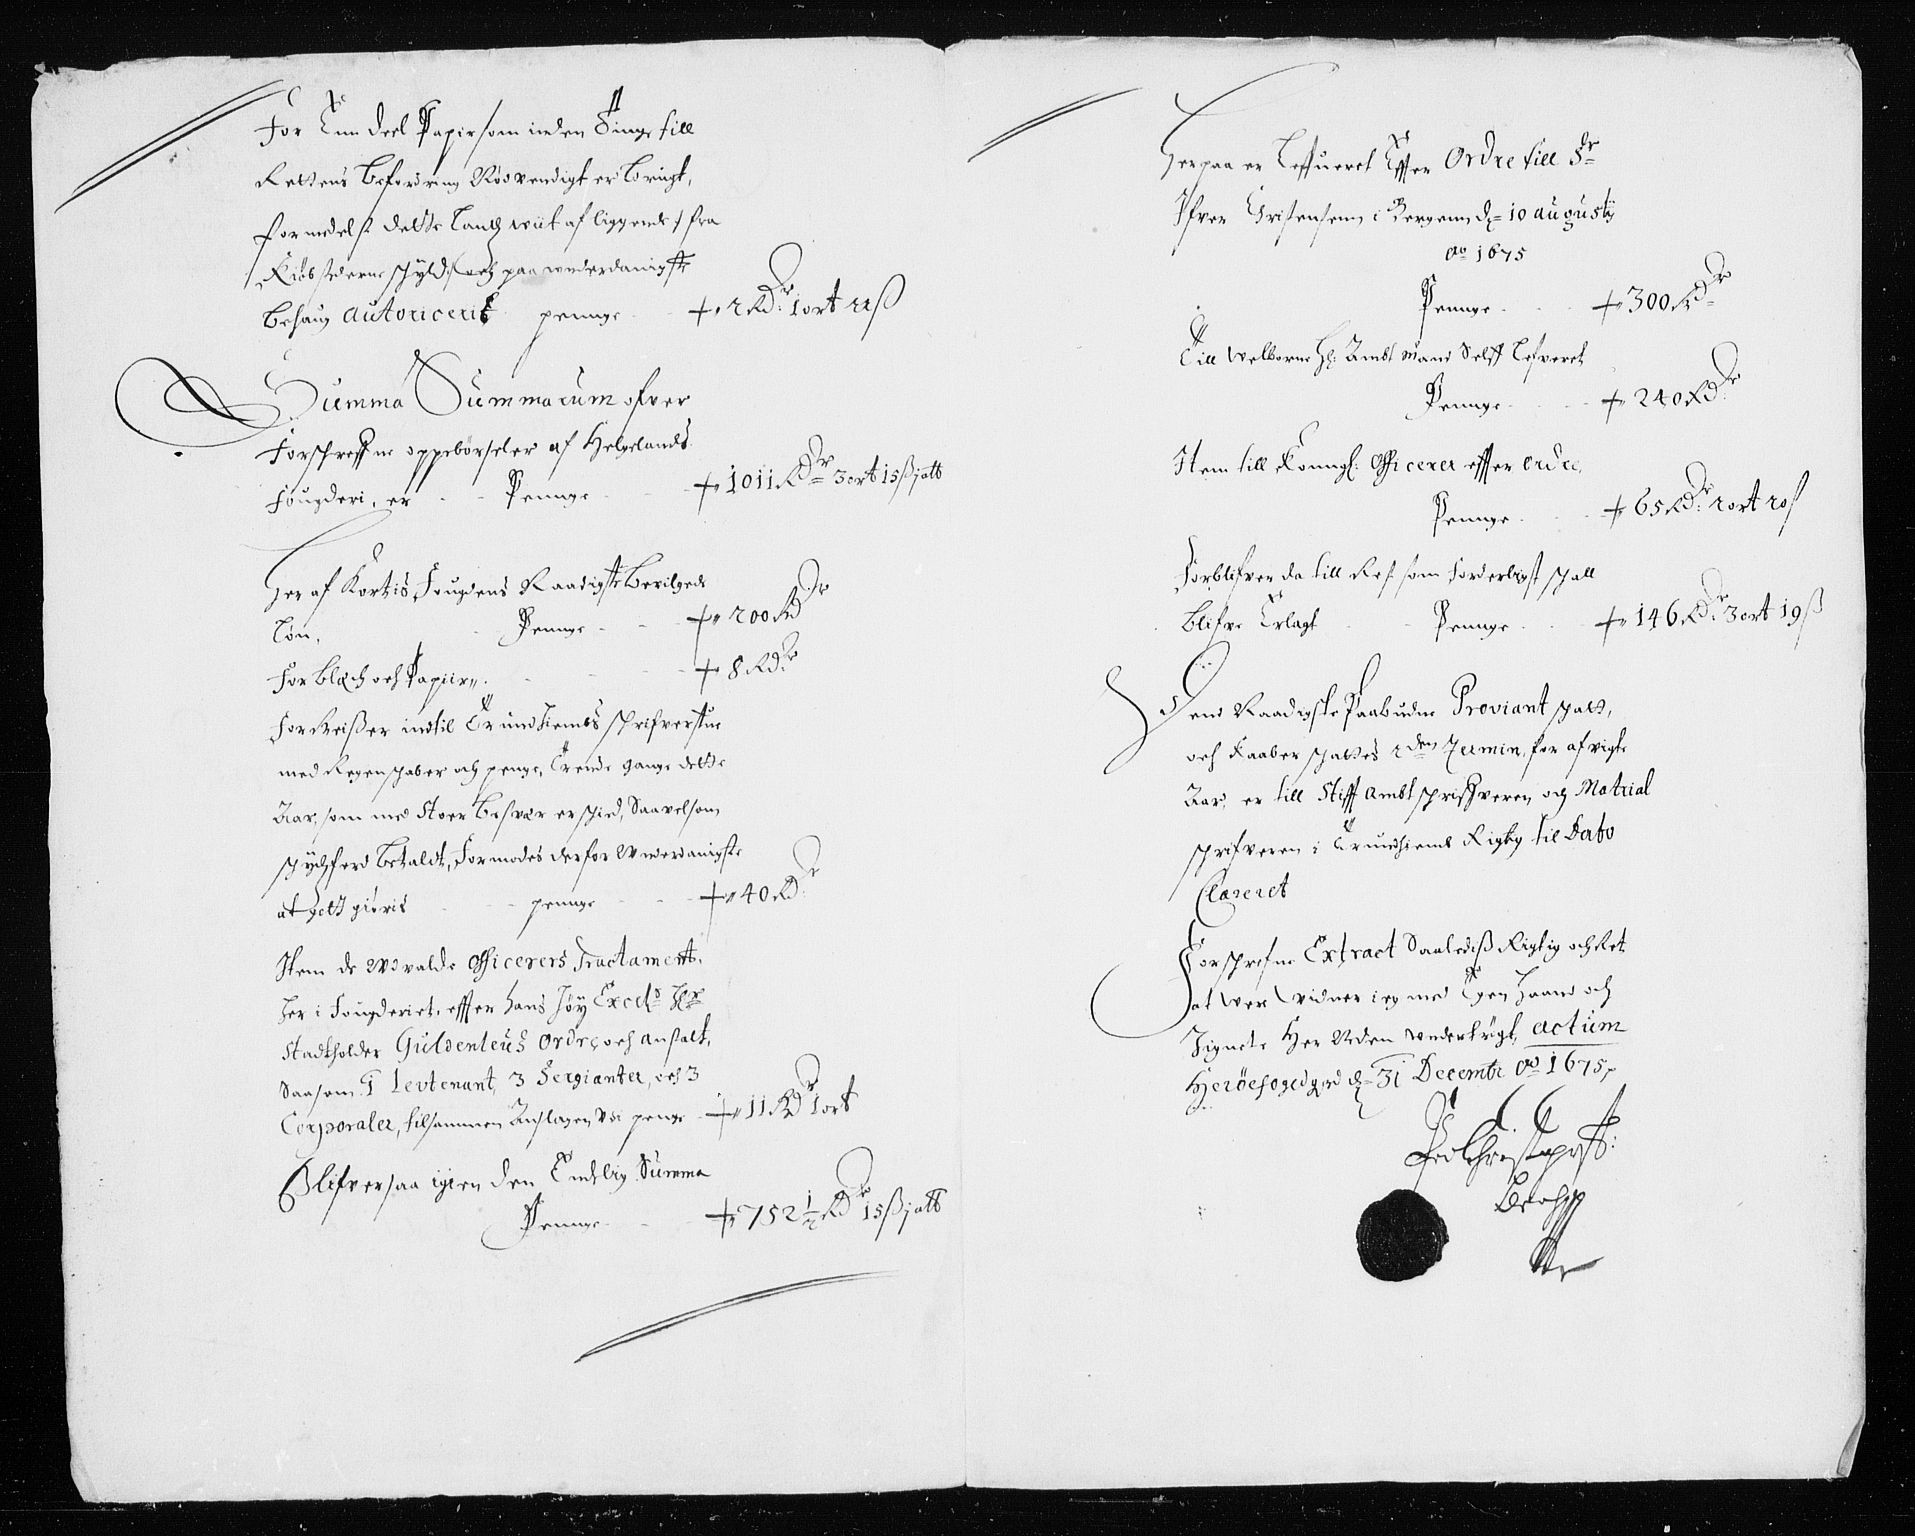 For Een Deel Papir som inden Tinge till
Rettens befordring Nödvendigt er brugt,
formedelst dette Land wiit af liggende fra
Kiöbstederne schyld och paa underdanigste
behaug autoricerit penge 2 RDr: 1 ort 22 ß
Summa Summarum ofver
Forschrefne oppebörseler af Helgelands
Fougderi, er Penge 1011 RDr 3 ort 15 ß j alb
Her af kortis Fougdens Naadigste bevilgede
Lön, Penge 200 RDr
For blæch och Papiir 8 RDr
For Reiser indtil Trundhiembs schrifverstue
med Regenschaber och penge, Trende gange dette
Aar, som med stoer besvær er schied, Saavelsom
schydtzferd betaldt, Formodes derfor Underdanigste
at godtgiöris penge 40 RD:r
Item de Udvalde officerers Tractament,
her i Fougderiet, effter hans höy Excels Hr
Stadtholder Güldenleus ordre och anstalt,
Saasom 1 Levtenant, 3 Sergianter, och 3
Corporaler, tilsammen Anslagen Udi penge 11 RDr 1 ort
Blifver saa igien den Endelig Summa
Penge 752 ½ RDr 15 ß j alb
Herpaa er Leffueret Effter Ordre till Sr
Ifver Christensenn i Bergenn d= 10 augusty
ao 1675
Penge 300 RDr
Till Welborne Hr: Ambtmand Selff Lefveret
Penge 240 RDr
Item till Konngl: officerer effter ordre,
Penge 65 RDr: 2 ort 20 ß
Forblifver da till Rest som forderligst schall
blifve Erlagt Penge 146 RDr: 3 ort 19 ß
Dend Naadigste Paabudne Proviant schatt,
och Kaaber schattes 2den Termin, for afvigte
Aar, er till Stifft ambtschrifveren och Matrial
schrifveren i Trundhiemb Rigtig til Dato
Clareret
Forschrefne Extract Saaledis Rigtig och Ret
at were widner ieg med Egen Haand och
Zignete Her Neden undertrögt, actum
Heröefogedgrd d= 31 Decembr ao 1675
Peder Christophers: